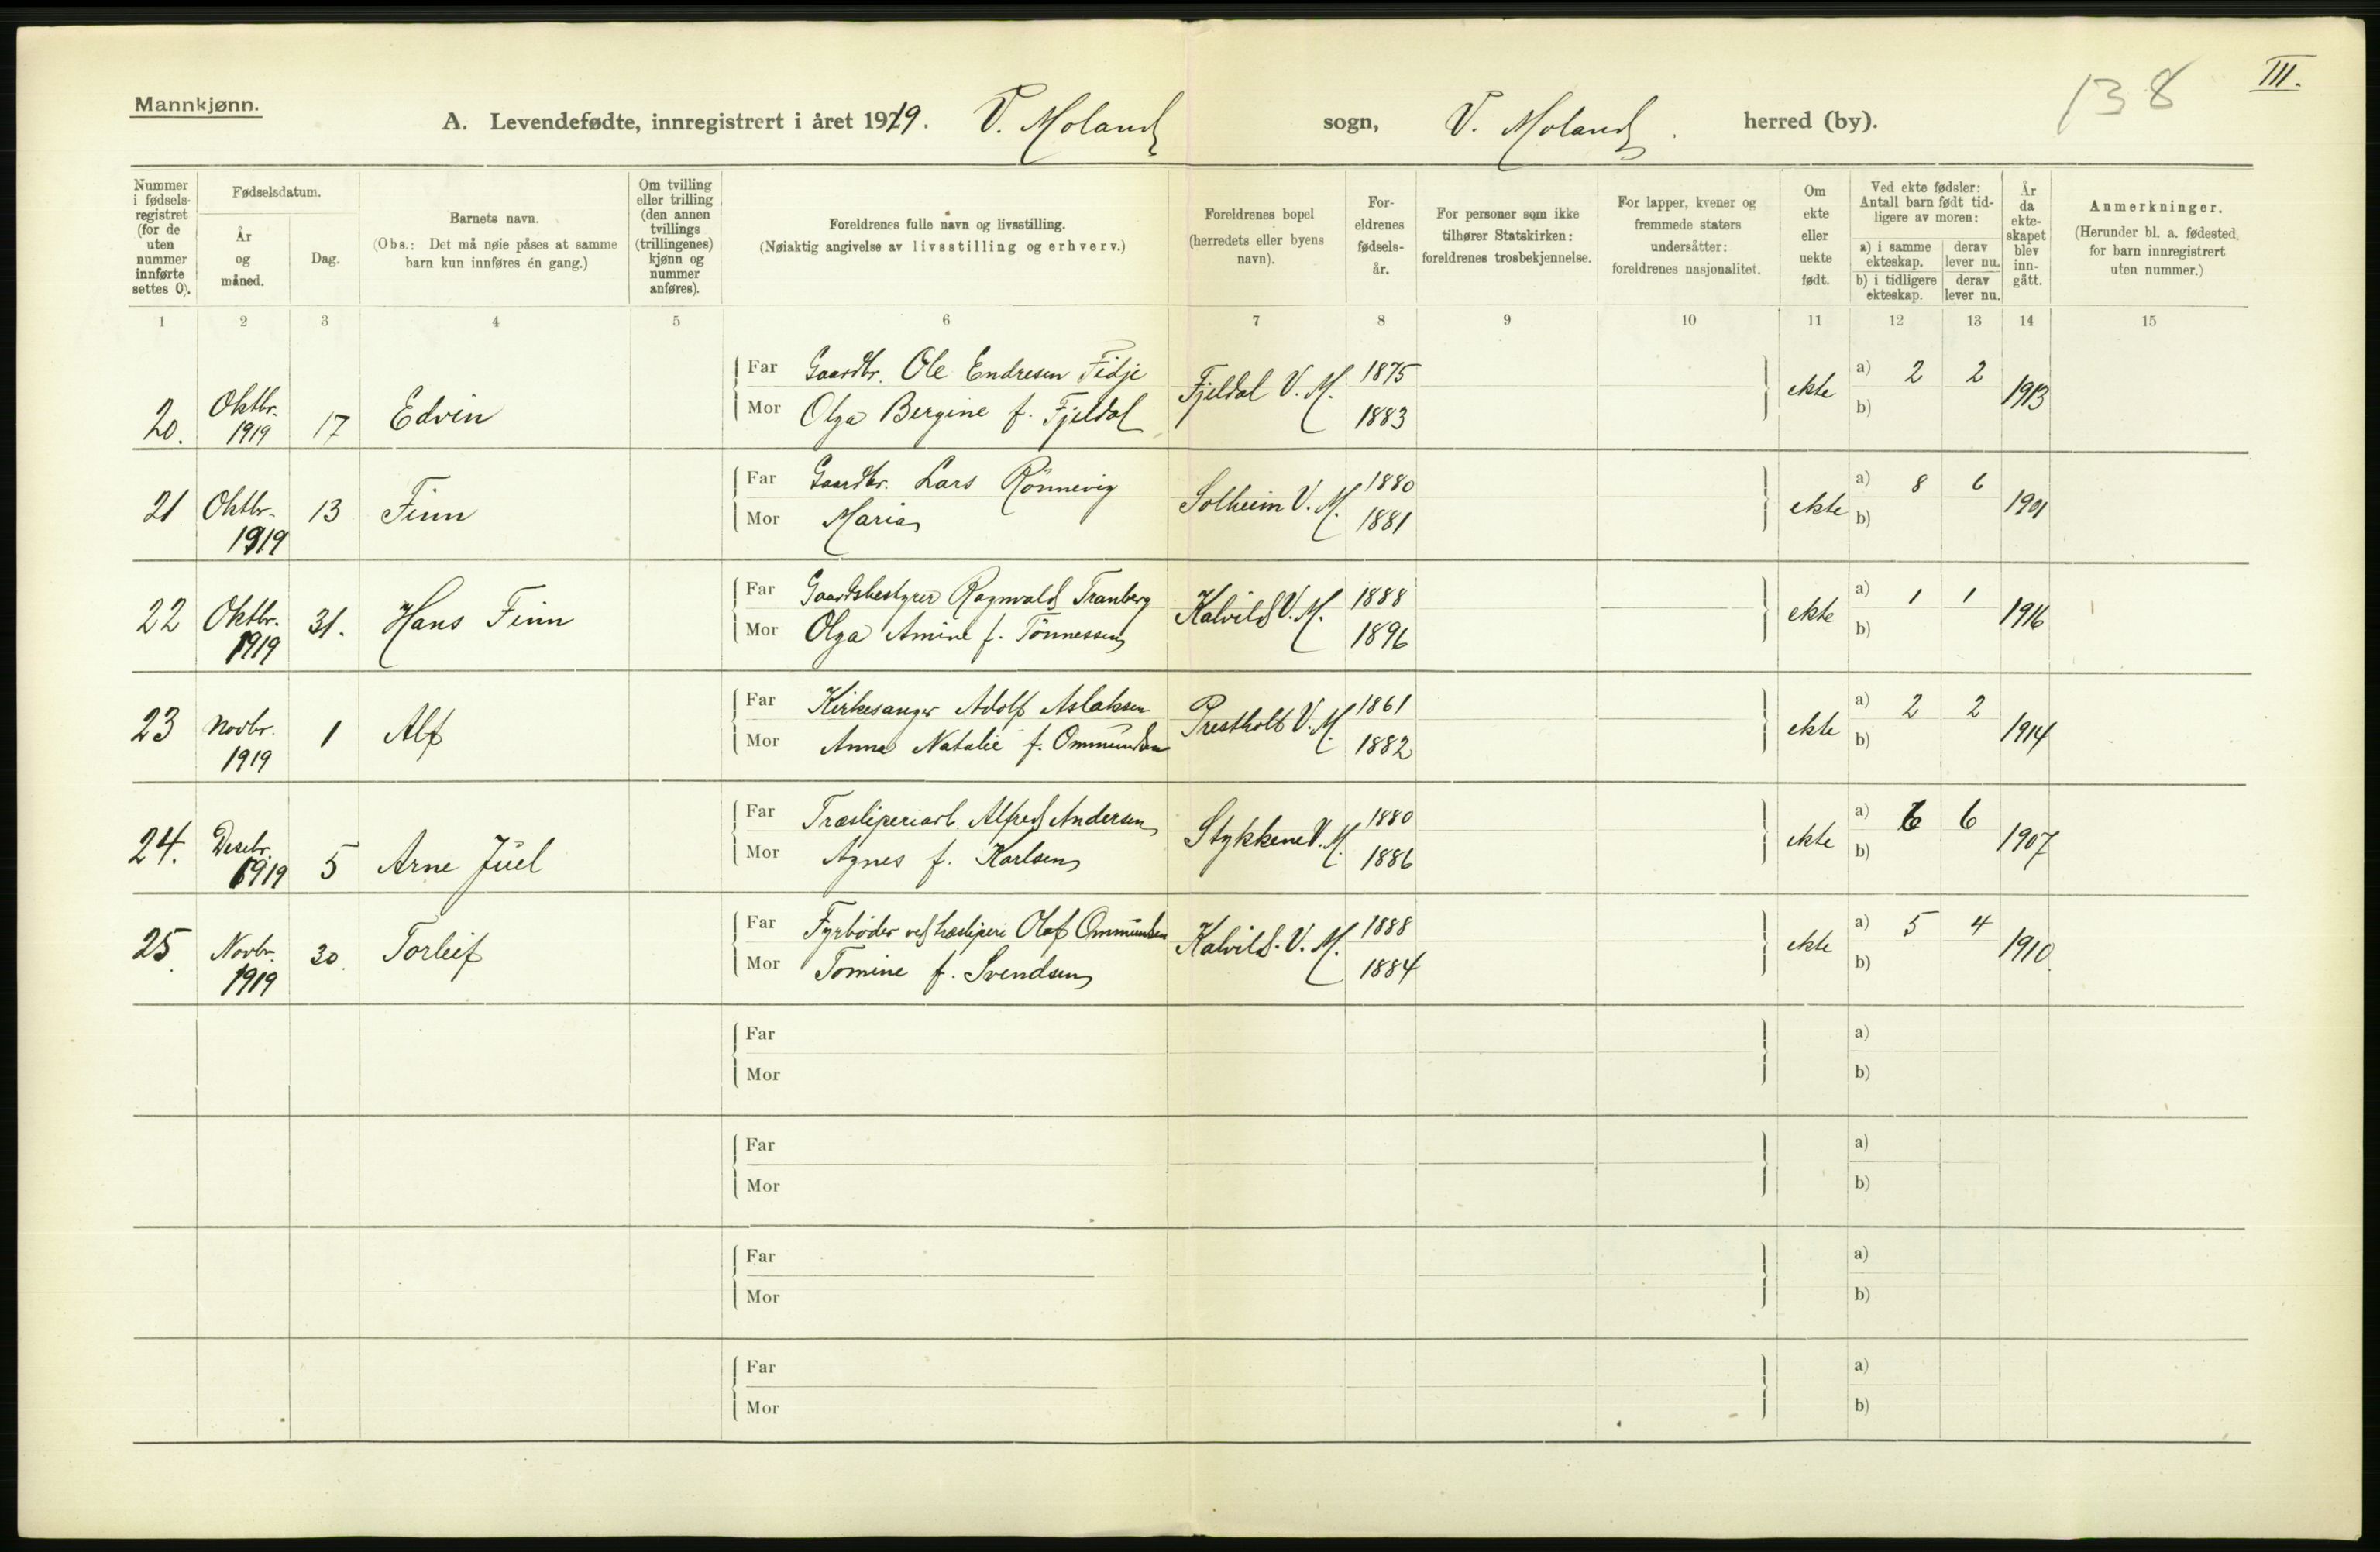 Mannkjønn.
A. Levendefødte, innregistrert i året 1919. V. Moland sogn, V. Moland. herred (by).
138
III.
Nummer i fødselsregistret (for de uten nummer innførte settes 0).
Fødselsdatum.
År og måned.
Dag.
Barnets navn.
(Obs.: Det må nøie påses at samme barn kun innføres én gang.)
Om tvilling eller trilling (den annen tvillings (trillingenes) kjønn og nummer anføres).
Foreldrenes fulle navn og livsstilling.
(Nøiaktig angivelse av livsstilling og erhverv.)
Foreldrenes bopel (herredets eller byens navn).
Foreldrenes fødselsår.
For personer som ikke tilhører Statskirken: foreldrenes trosbekjennelse.
For lapper, kvener og fremmede staters undersåtter: foreldrenes nasjonalitet.
Om ekte eller uekte født.
Ved ekte fødsler: Antall barn født tidligere av moren:
a) i samme ekteskap.
derav lever nu.
b) i tidligere ekteskap.
derav lever nu.
År da ekteskapet blev inngått.
Anmerkninger.
(Herunder bl. a. fødested for barn innregistrert uten nummer.)
1 2 3 4 5 6 7 8 9 10 11 12 13 14 15
20. Oktbr. 1919 17 Edvin
Far Gaardbr. Ole Endresen Fidje Fjeldal V. M. 1875 ekte a) 2 2 1913
Mor Olga Bergine f. Fjeldal 1883 b)
21 Oktbr. 1919 13 Finn
Far Gaardbr. Lars Rönnevig Solheim V. M. 1880 ekte a) 8 6 1901
Mor Maria 1881 b)
22 Oktbr. 1919 31. Hans Finn
Far Gaardsbestyrer Ragnvald Tranberg Kalvild V. M. 1888 ekte a) 1 1 1916
Mor Olga Amine f. Tönnessen 1896 b)
23 Novbr. 1919 1 Alf
Far Kirkesanger Adolf Aslaksen Prestholt V. M. 1861 ekte a) 2 2 1914
Mor Anna Natalie f. Ommundsen 1882 b)
24. Desbr. 1919 5 Arne Juel
Far Træsliperiarb. Alfred Andersen Stykkene V. M. 1880 ekte a) 6 6 1907
Mor Agnes f. Karlsen 1886 b)
25 Novbr. 1919 30 Torleif
Far Fyrböder ved træsliperi Olaf Ommundsen Kalvild. V. M. 1888 ekte a) 5 4 1910
Mor Tomine f. Svendsen 1884 b)
Far a)
Mor b)
Far a)
Mor b)
Far a)
Mor b)
Far a)
Mor b)